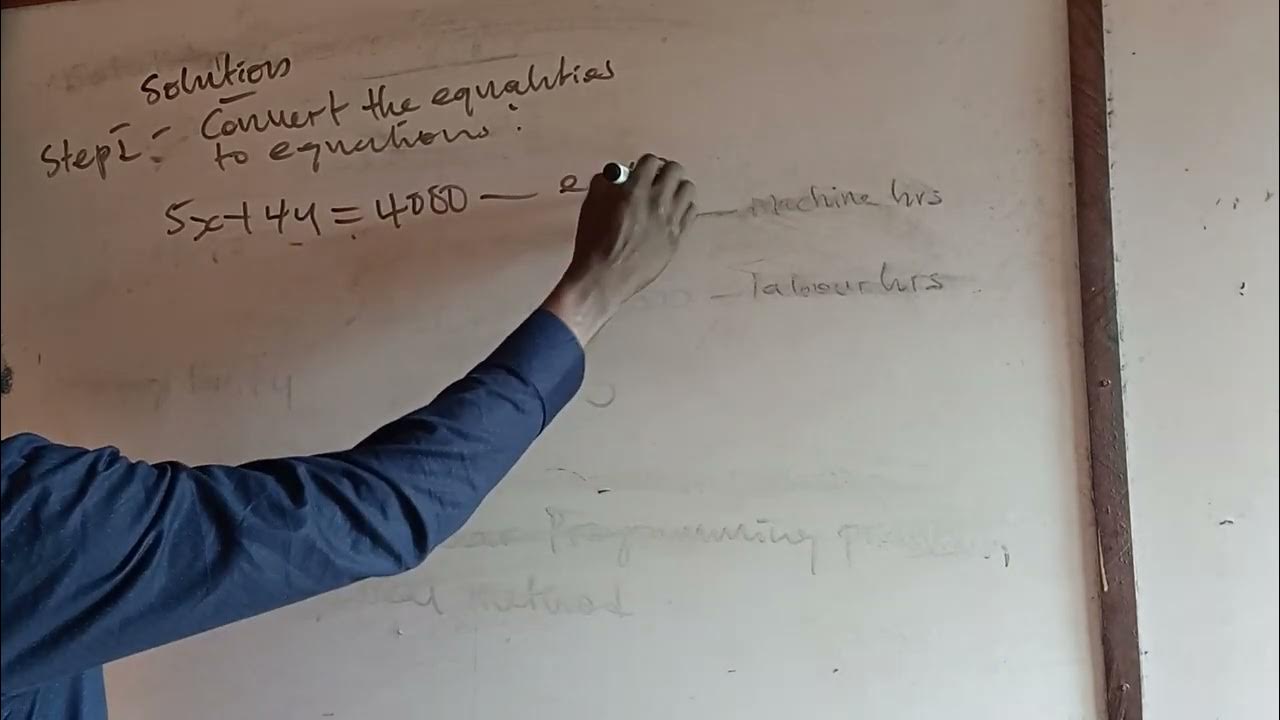 Solution
Step 1:- Convert the equalities
to equations:
5x+4y=4080 — e
— Machine hrs
— labour hrs
Programming
method